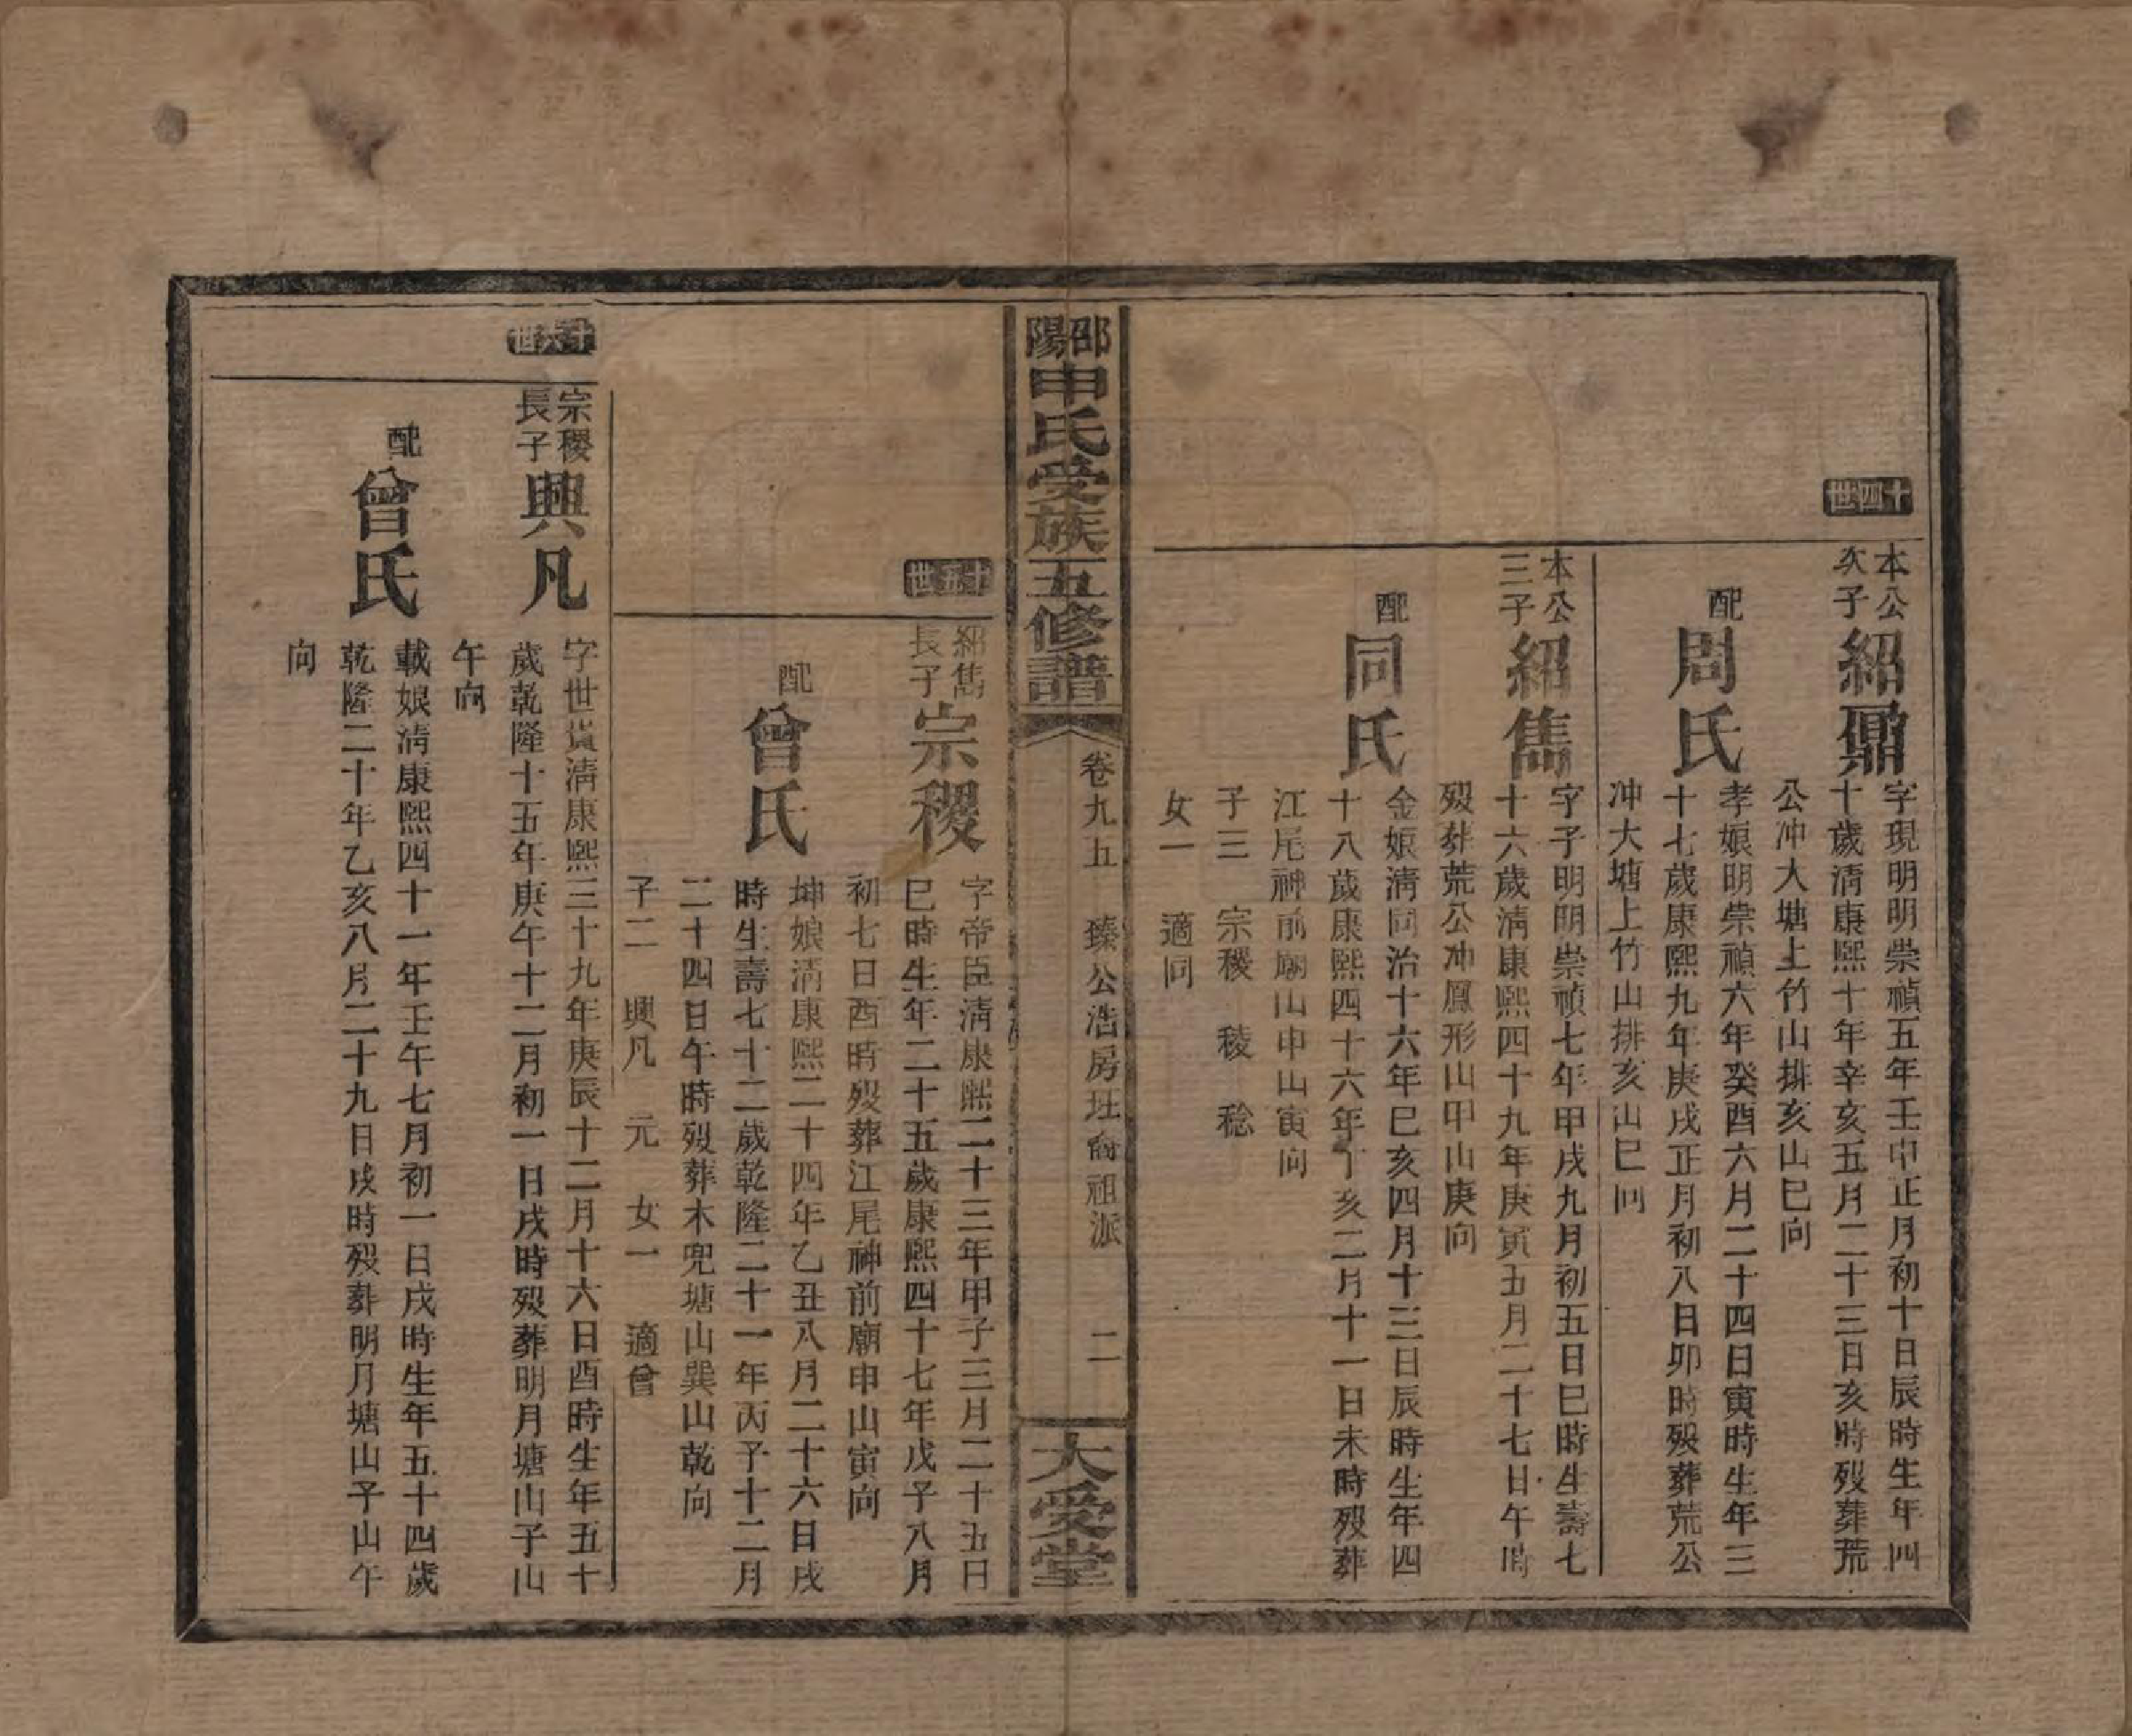 十四世
本公
次子
紹鼐
字現明明崇禎五年壬申正月初十日辰時生年四
十歲清康熙十年辛亥五月二十三日亥時歿葬荒
公冲大塘上竹山排亥山巳向
配
周氏
孝娘明崇禎六年癸酉六月二十四日寅時生年三
十七歲康熙九年庚戌正月初八日卯時歿葬荒公
冲大塘上竹山排亥山巳向
本公
三子
紹雋
字子明明崇禎七年甲戌九月初五日巳時生壽七
十六歲清康熙四十九年庚寅五月二十七日午時
歿葬荒公冲鳳形山甲山庚向
配
同氏
金娘清同治十六年巳亥四月十三日辰時生年四
十八歲康熙四十六年丁亥二月十一日未時歿葬
江尾神前廟山申山寅向
子三 宗稷 稜 稔
女一 適同
邵陽申氏受族五修譜
卷九五 臻公浩房玨裔祖派 二
大受堂
十五世
紹雋
長子
宗稷
字帝臣清康熙二十三年甲子三月二十五日
巳時生年二十五歲康熙四十七年戊子八月
初七日酉時歿葬江尾神前廟申山寅向
配
曾氏
坤娘清康熙二十四年乙丑八月二十六日戌
時生壽七十二歲乾隆二十一年丙子十二月
二十四日午時歿葬木兜塘山巽山乾向
子二 興凡 元 女一 適曾
十六世
宗稷
長子
興凡
字世貴清康熙三十九年庚辰十二月十六日酉時生年五十
歲乾隆十五年庚午十二月初一日戌時歿葬明月塘山子山
午向
配
曾氏
載娘清康熙四十一年壬午七月初一日戌時生年五十四歲
乾隆二十年乙亥八月二十九日戌時歿葬明月塘山子山午
向